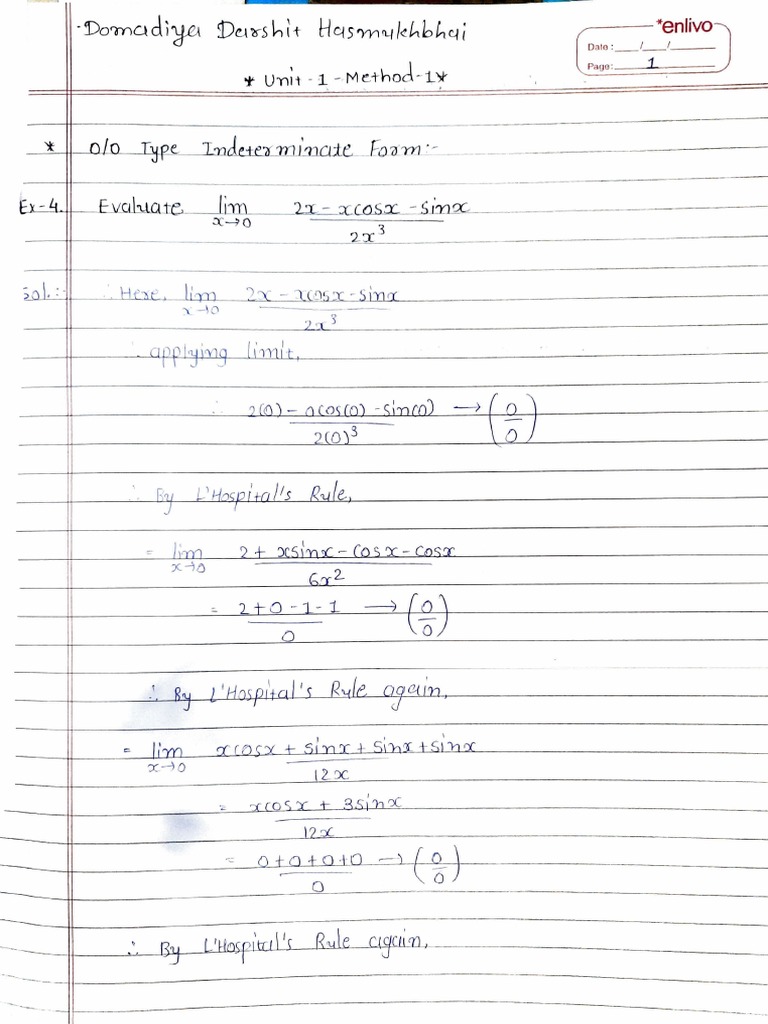 Domadiya Darshit Hasmukhbhai
*enlivo
Date: ___/___/______
Page: 1
* Unit-1-Method-1*
* 0/0 Type Indeterminate Form:-
Ex-4. Evaluate lim x→0 2x-xcosx-sinx / 2x³
Sol.:- ∴ Here, lim x→0 2x-xcosx-sinx / 2x³
∴ applying limit,
∴ 2(0)-0cos(0)-sin(0) / 2(0)³ → (0/0)
∴ By L'Hospital's Rule,
= lim x→0 2+xsinx-cosx-cosx / 6x²
= 2+0-1-1 / 0 → (0/0)
∴ By L'Hospital's Rule again,
= lim x→0 xcosx+sinx+sinx+sinx / 12x
= xcosx+3sinx / 12x
= 0+0+0+0 / 0 → (0/0)
∴ By L'Hospital's Rule again,